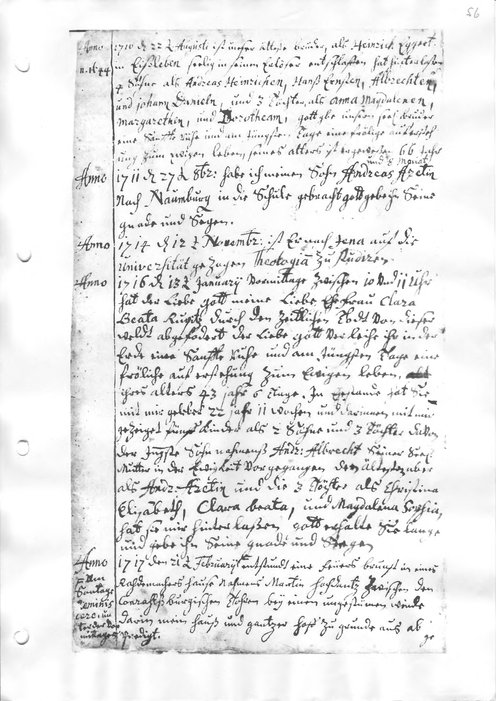 56
Anno 1710 d 22 Augusti ist unser ältester bruder, als Heinrich Eggert
n. 1644 in Eißleben seelig in seinem Erlöser entschlaffen hat hinterlassen
4 Söhne als Andreas Heinrichen, Hanß Ernsten, Albrechten,
und Johann Danieln, und 3 Töchter, als Anna Magdalenen,
Margarethen, und Dorotheam, gott gebe unsern seel. bruder
eine Sanffte ruhe und am Jüngsten Tage eine fröliche auferste=
ung zum ewigen leben, seines alters ist er geworden 66 Jahr
und 8 monat
Anno 1711 d 27 8br: habe ich meinen Sohn Andreas
Nach Naumburg in die Schule gebracht gott gebe ihm Seine
gnade und Seegen.
Anno 1714 d 12 Novembr: ist Er nach Jena auf die
Universität gezogen Theologia zu studiren.
Anno 1716 d 13 January Vormittage Zwischen 10 und 11 Uhr
hat der Liebe gott meine Liebe Ehefrau Clara
Beata durch den Zeitlichen Todt von dieser
weldt abgefodert der Liebe gott verleihe ihr in der
Erde eine Sanffte ruhe und am Jüngsten Tage eine
fröliche auferstehung zum Ewigen leben.
ihres alters 43 Jahr 6 Tage. In Ehestande hat Sie
mit mir gelebet 22 Jahr 11 wochen und darinnen mit mir
gezeuget fünff Kinder als 2 Söhne und 3 Töchter davon
der Jügste Sohn nahmenß Andr: Albrecht Seiner Seel.
Mutter in der Ewigkeit vorgegangen den ältesten aber
als Andr: und die 3 Töchter als Christina
Elisabeth, Clara Beata, und Magdalena Sophia,
hat sie mir hinderlassen. gott erhalte Sie lange
und gebe ihn Seine gnade und Seegen
Anno 1717 den 21 February entstundt eine Feuers brunst in eines
Am Rahdemachers hause Nahmens Martin zwischen den
Sontage Thoren bey einem ungestümen winde
Reminis darin mein hauß und gantzer hoff zu grunde auß ab
cere: un
ter der Vor
mittages Predigt. ge